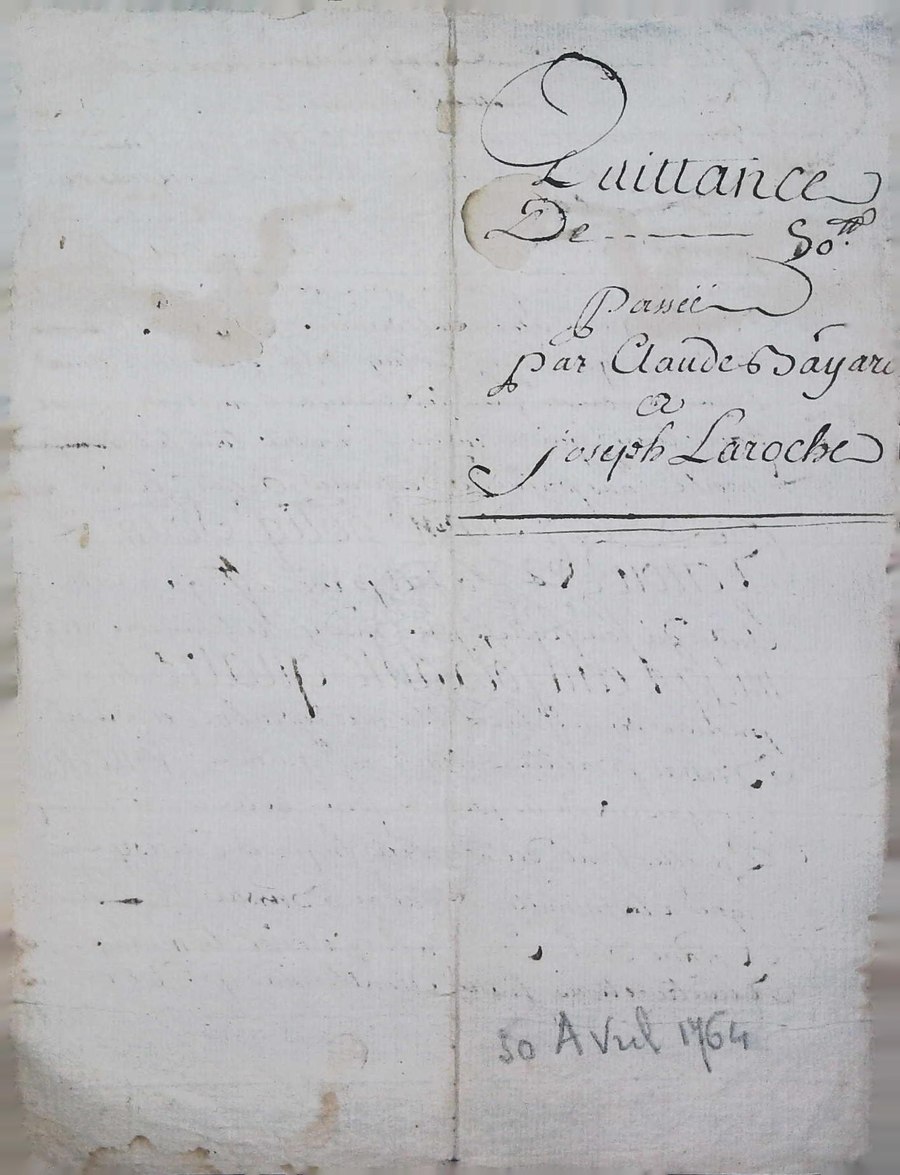 Quittance
De ---- 50.ᵗᵗ
Passée
par Claude Bayard
a
Joseph Laroche
30 Avril 1764